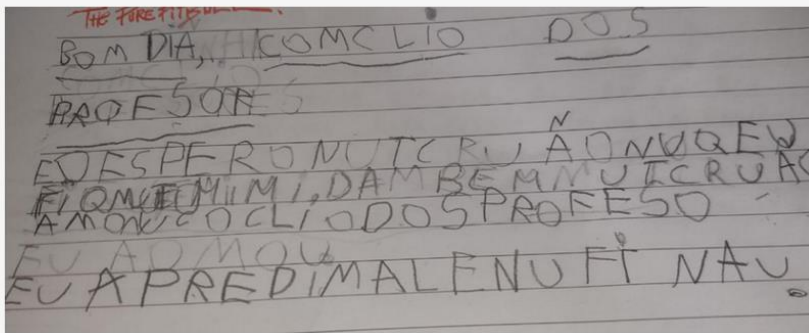 THE FORE
BOM DIA, COMCLIO DOS
PROFESOR
EOESPERONUTCRUÃONUQEU
MIMI, DAMBEMNUTCRUAO
AMONCOCLIODOSPROFESO
EU AOMOU
EU APREDIMALENUFINAU.